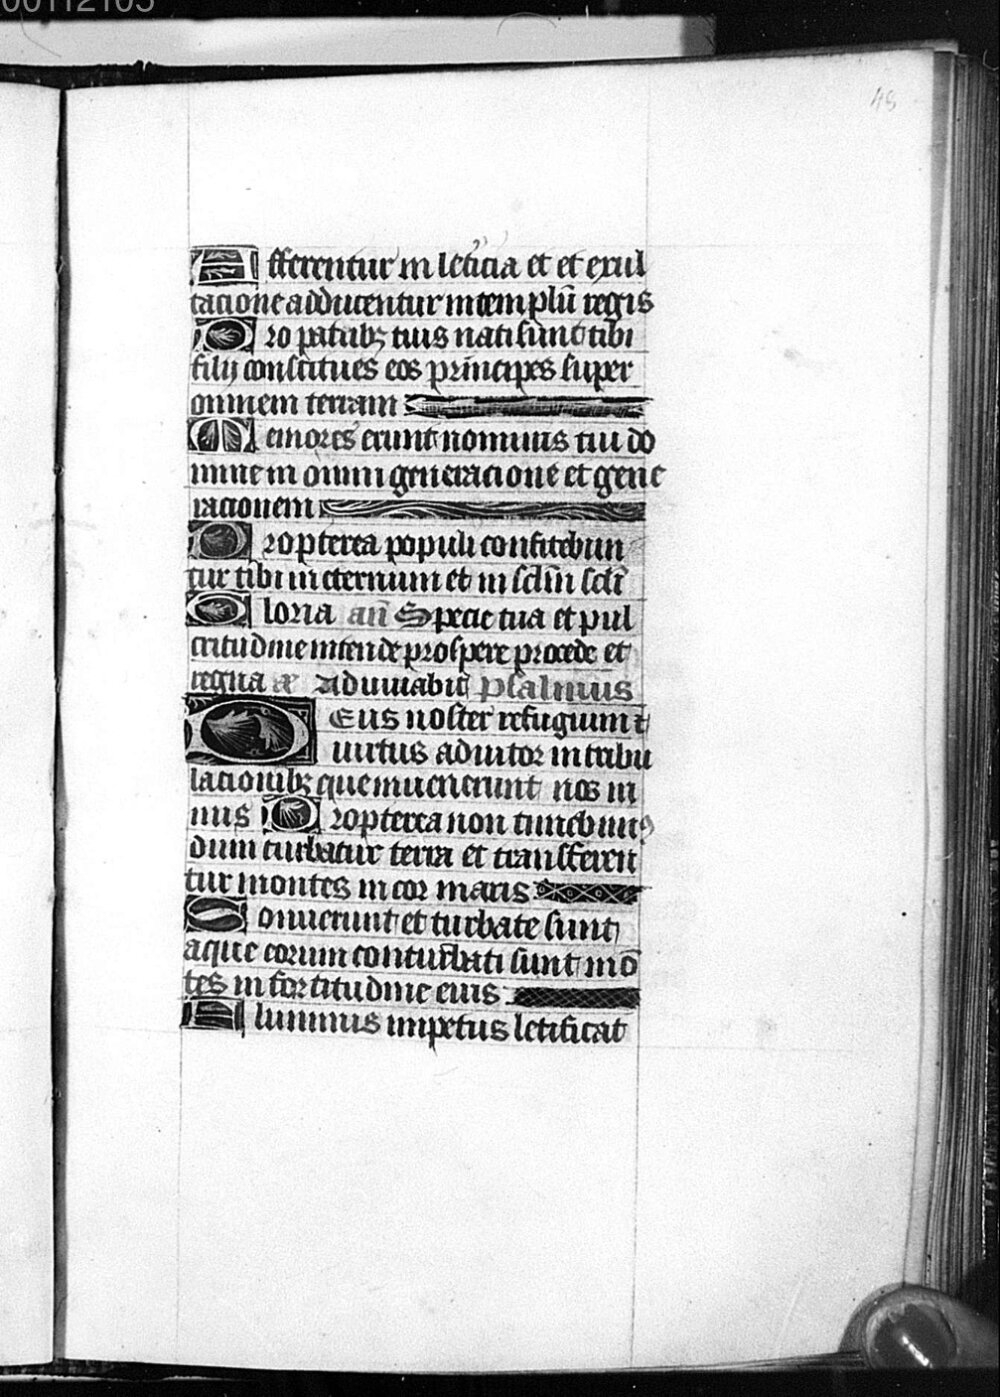 00112105
48
Afferentur in leticia et et exul
tacione adducentur in templū regis
Pro patribꝫ tuis nati sunt tibi
filij constitues eos principes super
omnem terram
Memores erunt nominis tui do
mine in omni generacione et gene
racionem
Propterea populi confitebun
tur tibi in eternum et in sclm̄ scl̄i
Gloria an̄ Specie tua et pul
critudine intende prospere procede et
regna Adiuuabit psalmus
Deus noster refugium et
uirtus adiutor in tribu
lacionibꝫ que inuenerunt nos ni
mis Propterea non timebimꝰ
dum turbabitur terra et transferen
tur montes in cor maris
Sonuerunt et turbate sunt
aque eorum conturbati sunt mō
tes in fortitudine eius
Fluminis impetus letificat